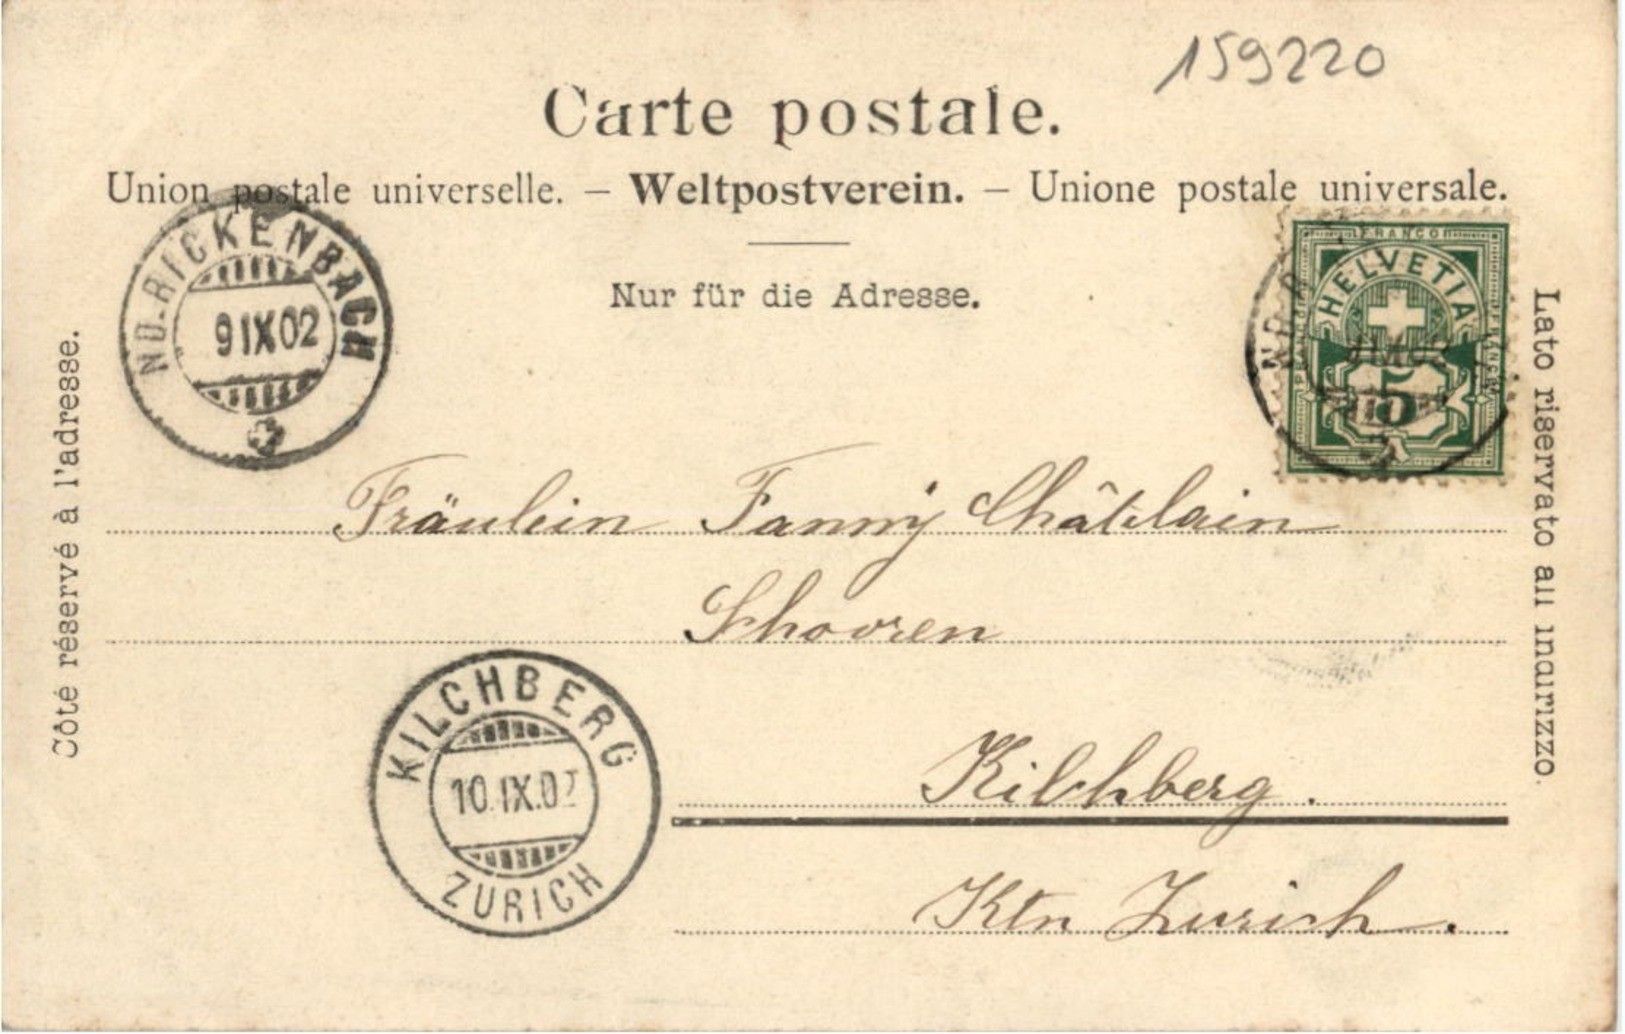 159220
Carte postale.
Union postale universelle. – Weltpostverein. – Unione postale universale.
Nur für die Adresse.
Côté réservé à l'adresse.
ND-RICKENBACH
9 IX 02
FRANCO
HELVETIA
5
Lato riservato all indirizzo.
Fräulein Fanny Châtelain
Schooren
Kilchberg.
Ktn Zurich.
KILCHBERG
10.IX.02
ZURICH